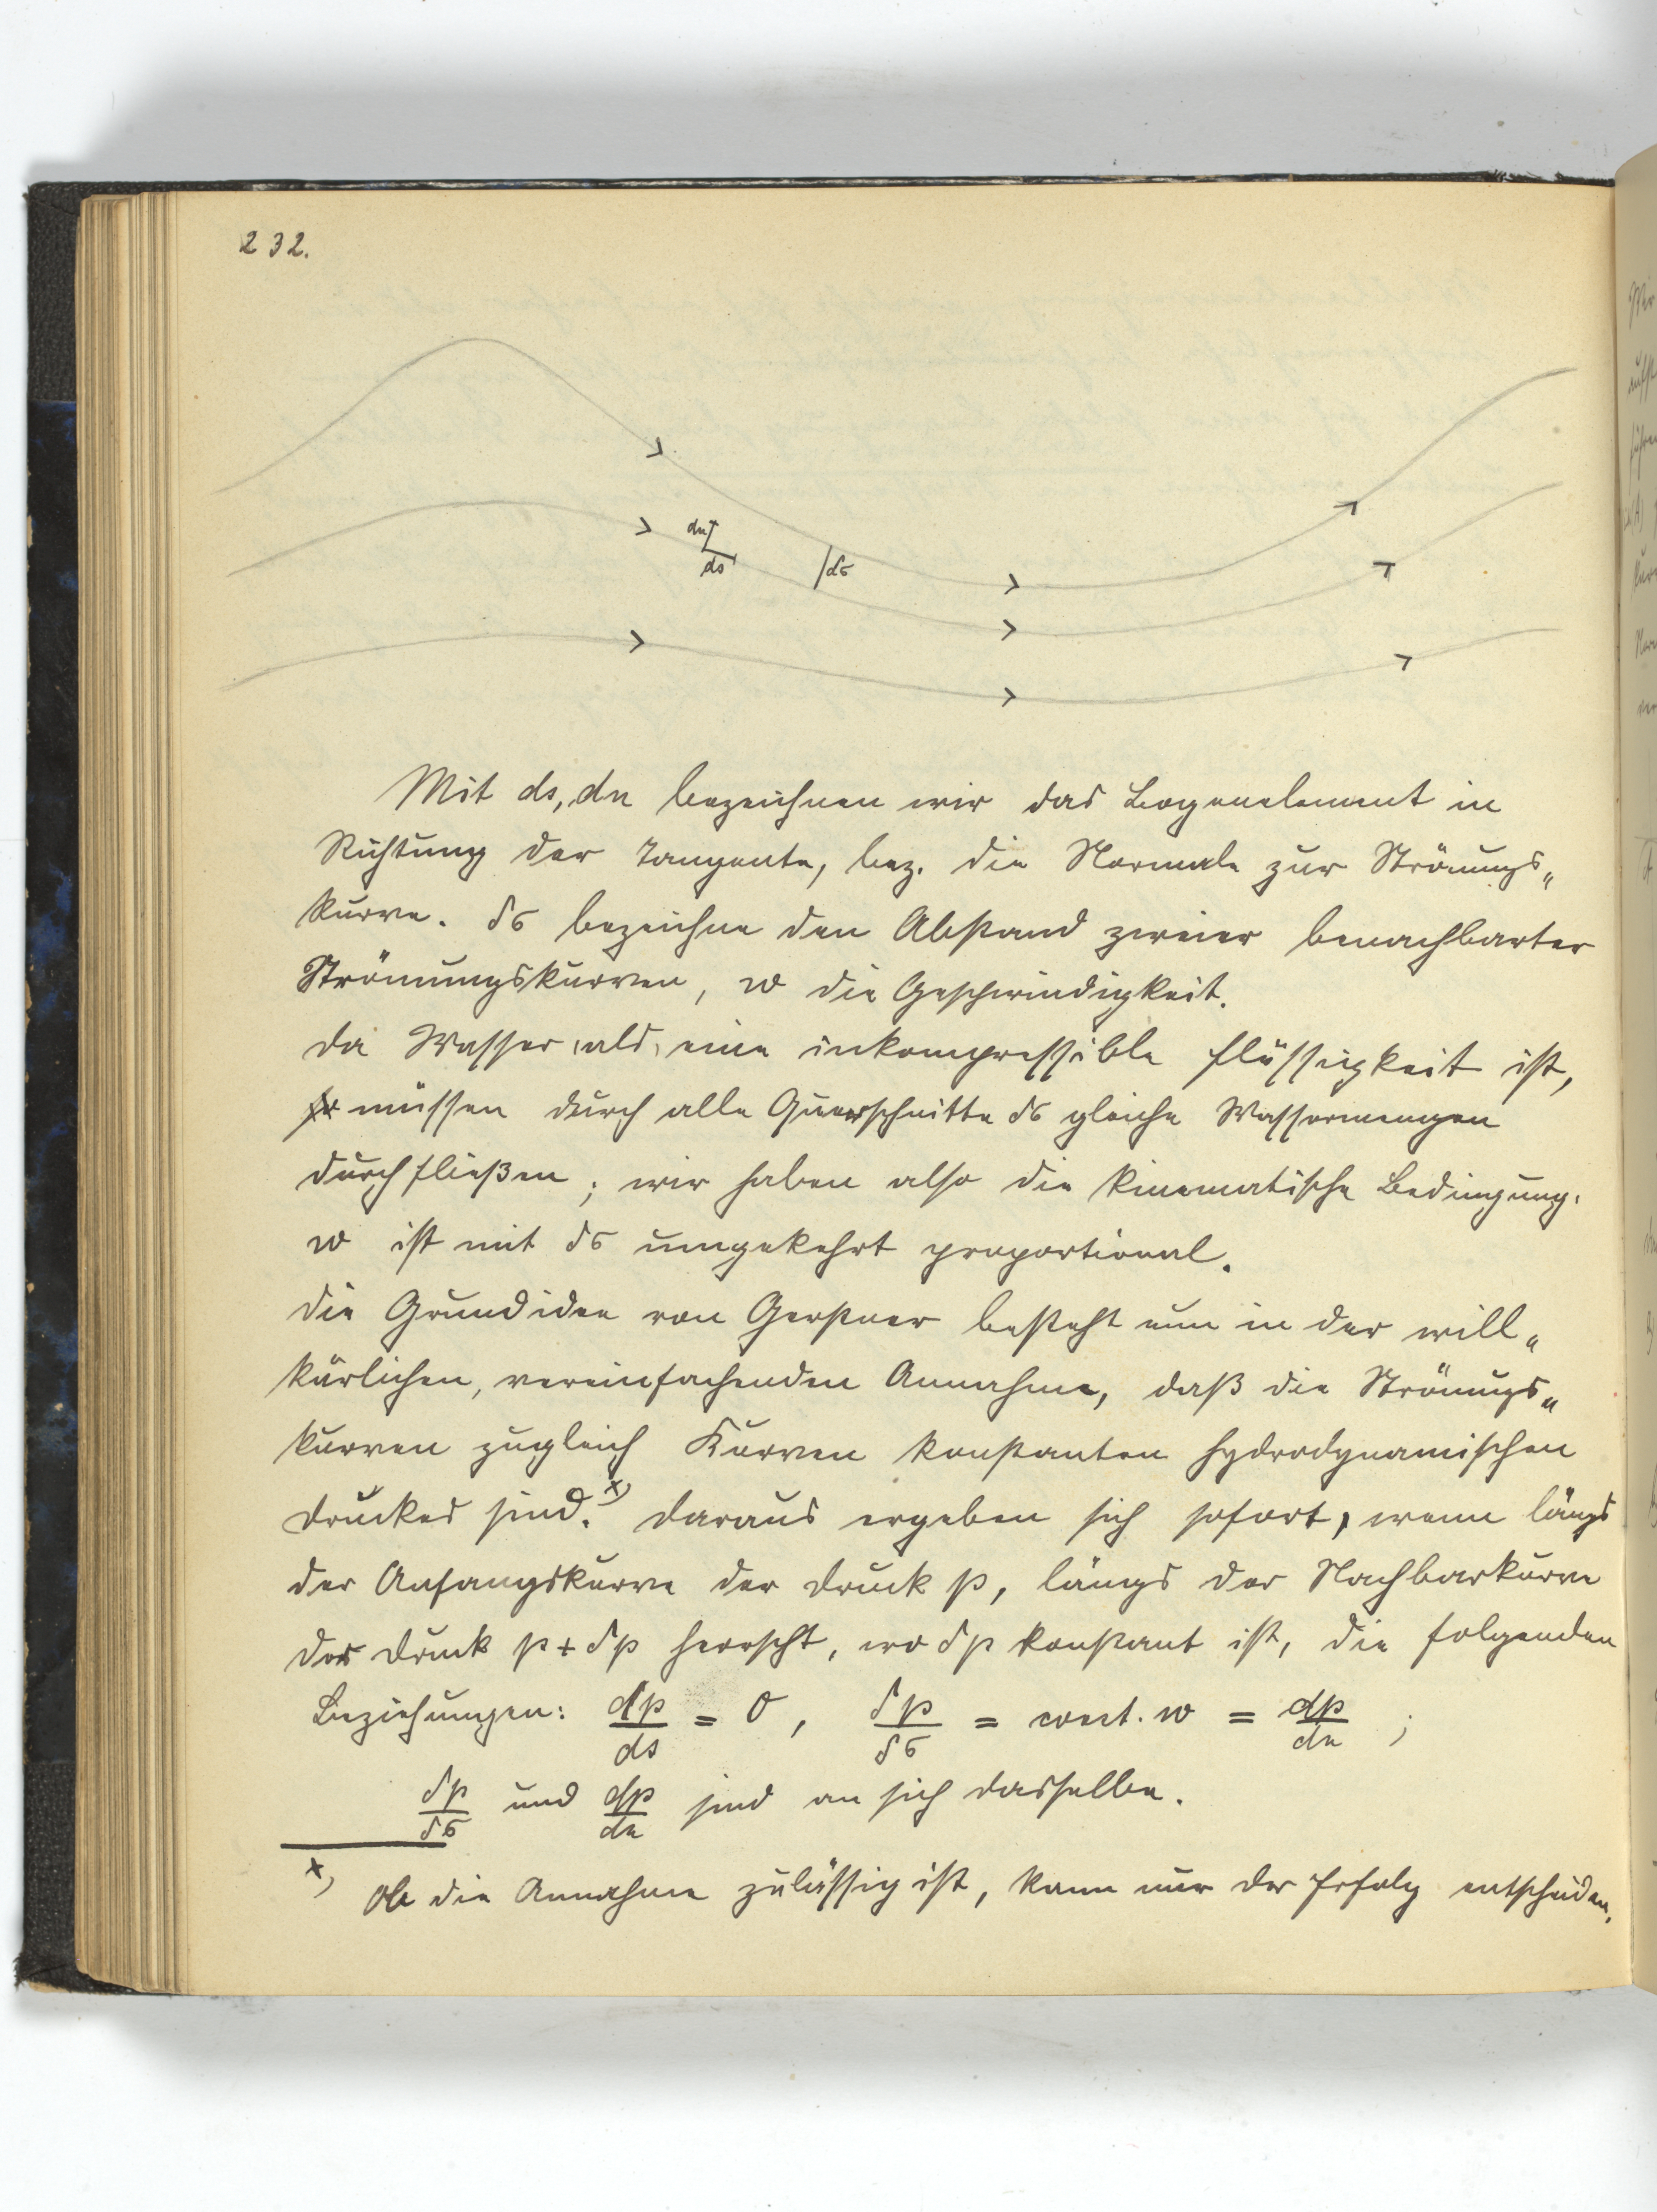 232.
dn
ds
δσ
Mit ds, dn bezeichnen wir das Bogenelement in
Richtung der Tangente, bez. die Normale zur Strömungs„
kurve. δσ bezeichne den Abstand zweier benachbarter
Strömungskurven, w die Geschwindigkeit.
Da Wasser als eine inkompressible Flüssigkeit ist,
müssen durch alle Querschnitte δσ gleiche Wassermengen
durchfließen; wir haben also die kinematische Bedingung:
w ist mit δσ umgekehrt proportional.
Die Grundidee von Gerstner besteht nun in der will„
kürlichen, vereinfachenden Annahme, daß die Strömungs„
kurven zugleich Kurven konstanten hydrodynamischen
Druckes sind.x) Daraus ergeben sich sofort, wenn längs
der Anfangskurve der Druck p, längs der Nachbarkurve
der Druck p + δp herrscht, wo δp konstant ist, die folgenden
Beziehungen: dp/ds = 0, δp/δσ = const. w = dp/dn ;
δp/δσ und dp/dn sind an sich dasselbe.
x) Ob die Annahme zulässig ist, kann nur der Erfolg entscheiden.